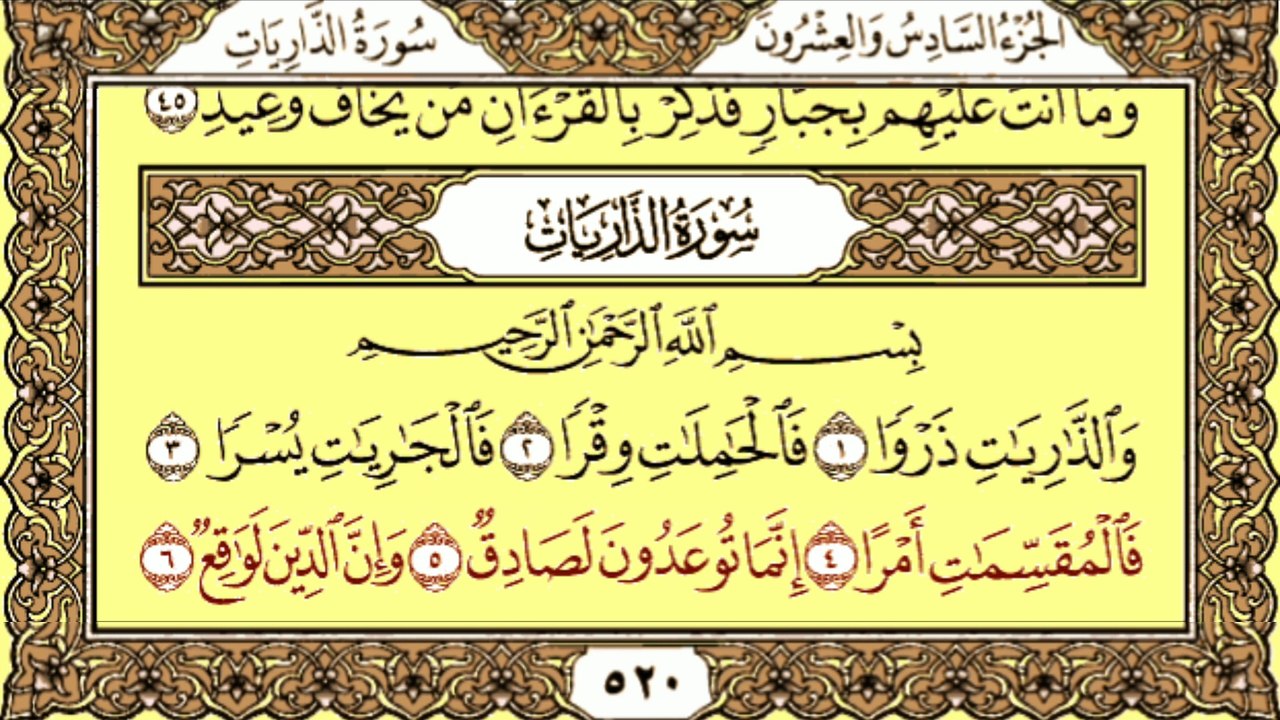 الجُزْءُ السَّادِسُ وَالعِشْرُونَ
سُورَةُ الذَّارِيَاتِ
وَمَآ أَنتَ عَلَيْهِم بِجَبَّارٍ فَذَكِّرْ بِالْقُرْءَانِ مَن يَخَافُ وَعِيدِ ٤٥
سُورَةُ الذَّارِيَاتِ
بِسْمِ ٱللَّهِ ٱلرَّحْمَٰنِ ٱلرَّحِيمِ
وَٱلذَّٰرِيَٰتِ ذَرْوًا ١ فَٱلْحَٰمِلَٰتِ وِقْرًا ٢ فَٱلْجَٰرِيَٰتِ يُسْرًا ٣
فَٱلْمُقَسِّمَٰتِ أَمْرًا ٤ إِنَّمَا تُوعَدُونَ لَصَادِقٌ ٥ وَإِنَّ ٱلدِّينَ لَوَٰقِعٌ ٦
٥٢٠